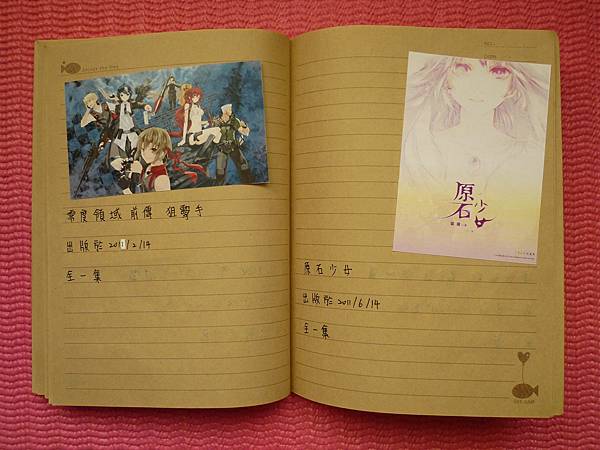 零度領域 前傳 狙擊手
出版於 2011/2/14
全一集
NO.
原石少女
原石少女
出版於 2011/6/14
全一集